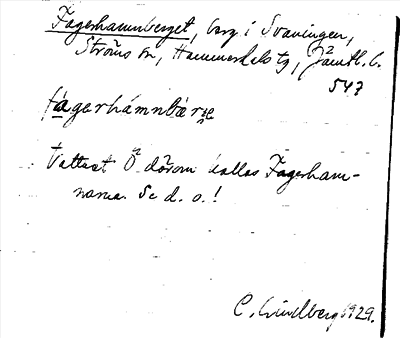 Fagerhamnberget, berg i Svaningen,
Ströms sn, Hammerdals tg, Jämtl. l.
547
fágerhámnbærge
Vattnet Ö därom kallas Fagerham-
narna. Se d. o.!
C. Lindberg 1929.